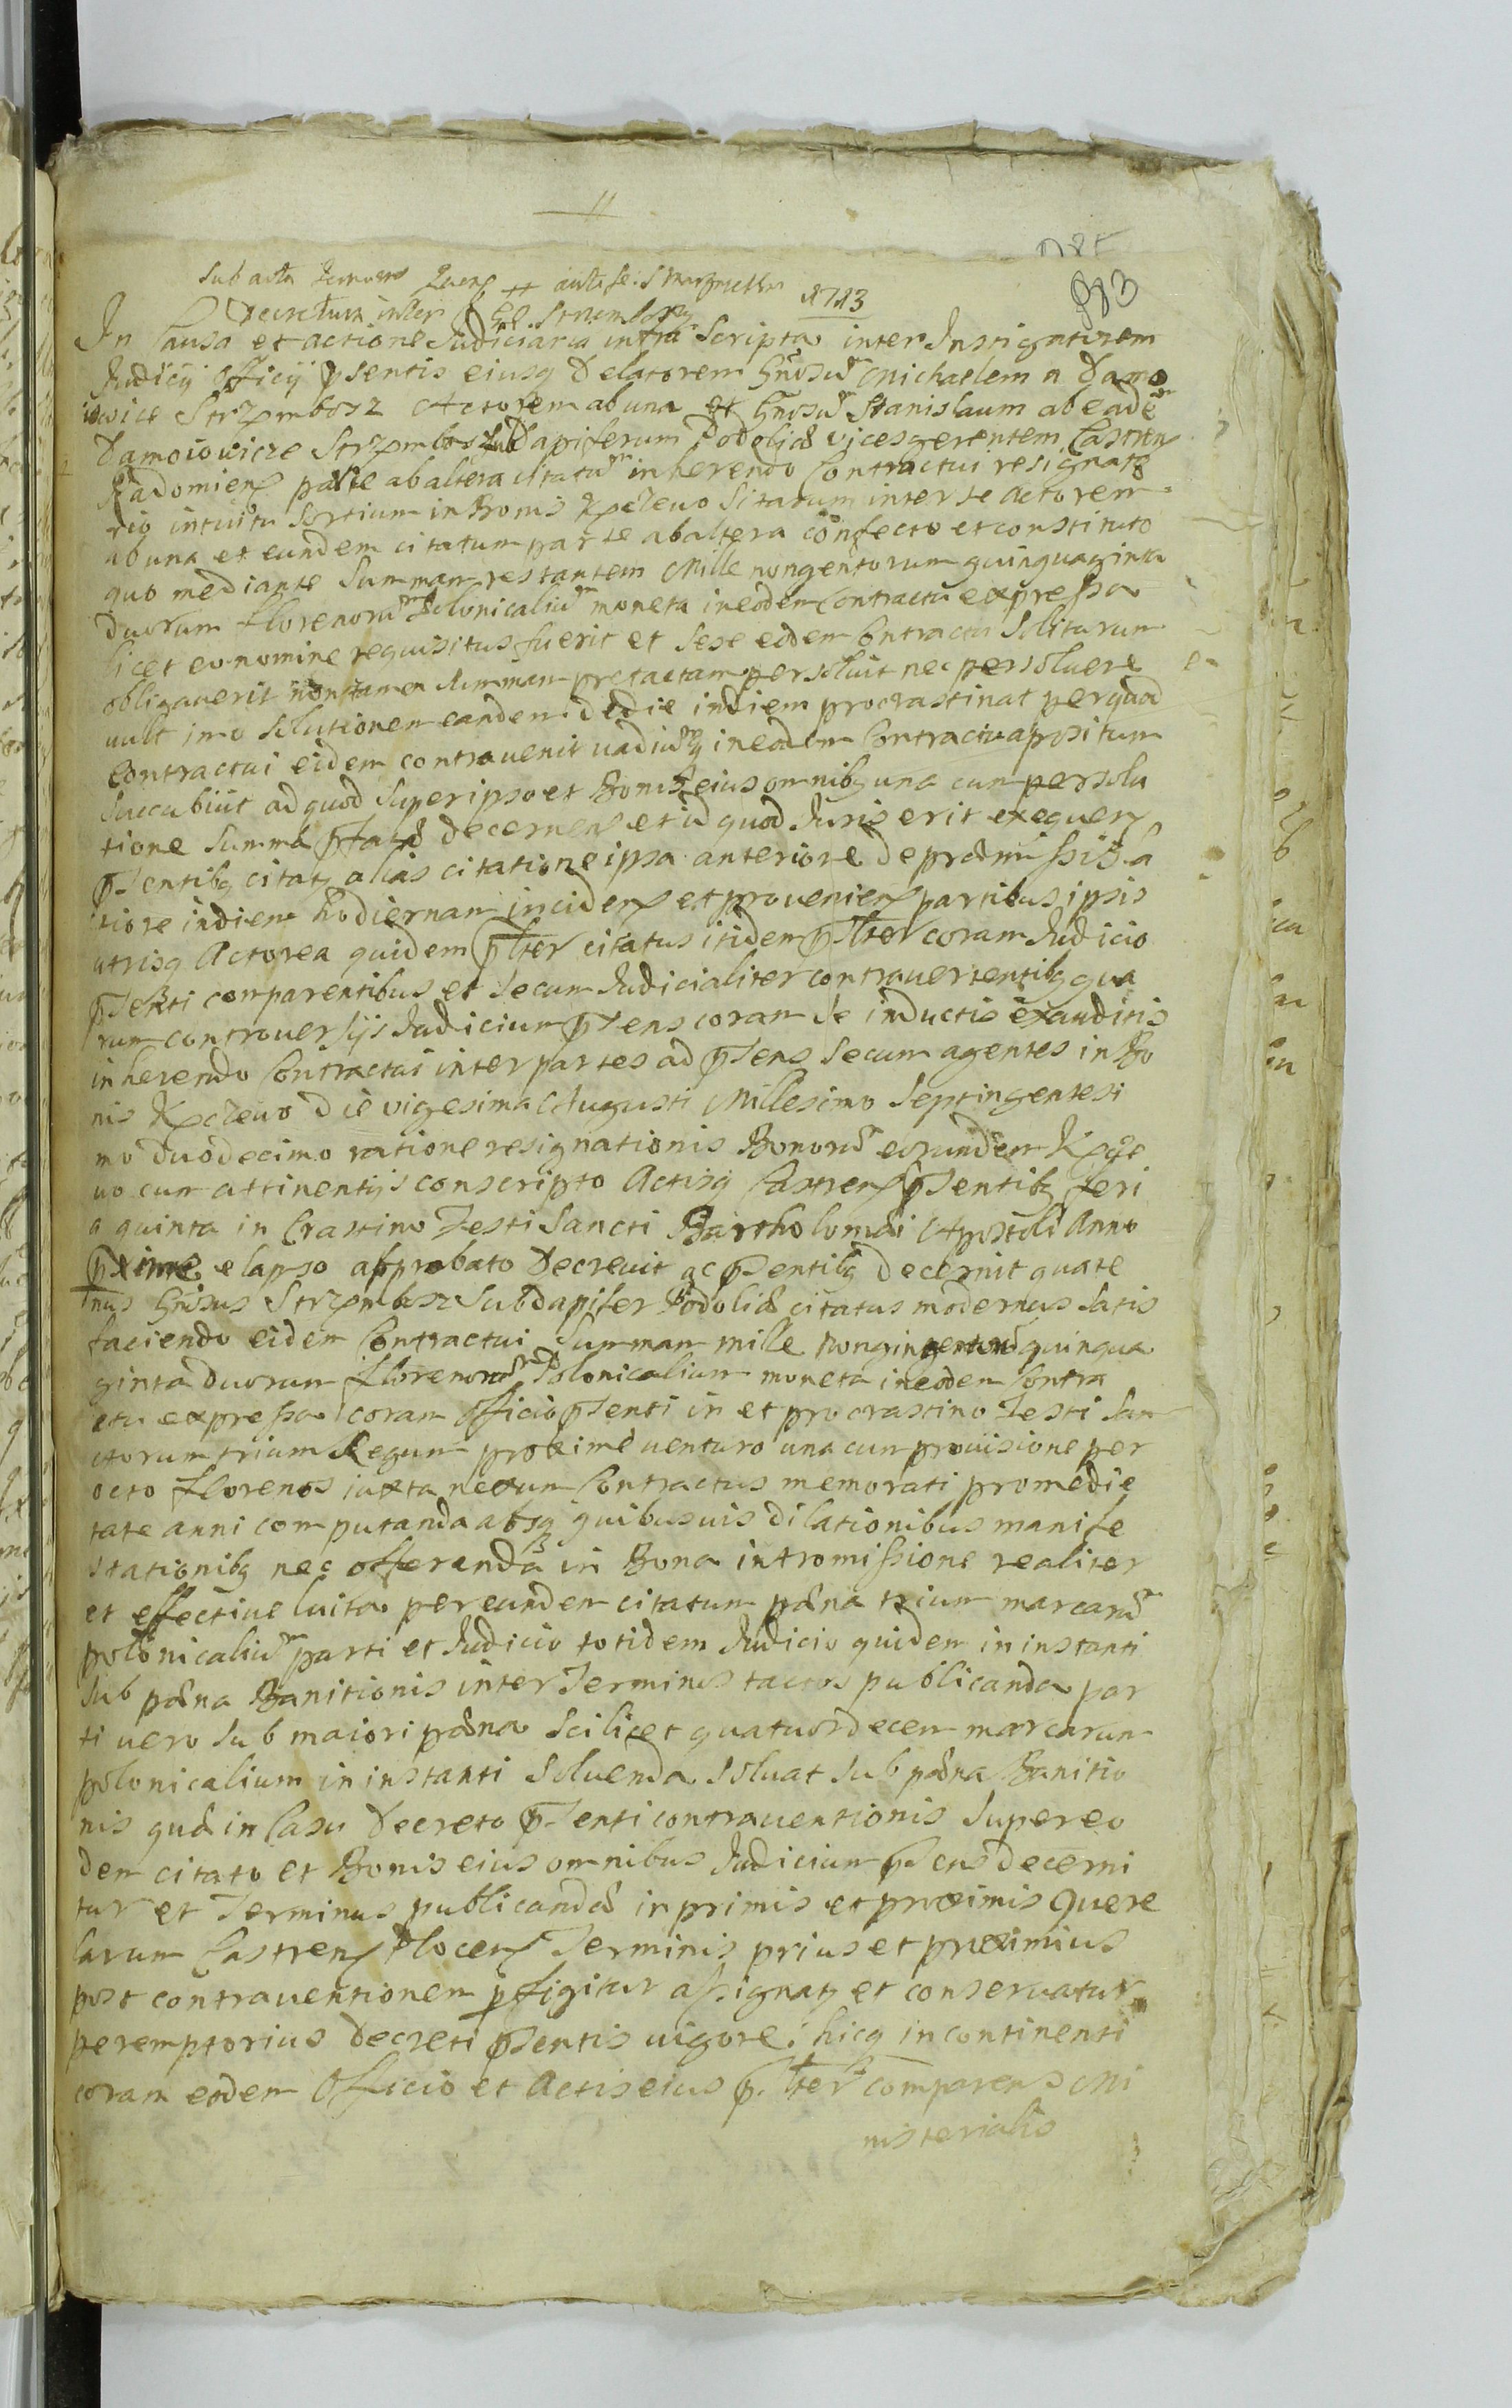 1713
983
Decretum inter GG. Strzembosz
In Causa et actione Judiciaria infra scripta inter Instigatorem
Judicij Officij p̄sentis eiusq Delatorem Gn̄osū Michaelem a Damo
iowice Strzembosz Actorem ab una et Gn̄osū Stanislaum ab eadē
Damoiowicze Strzembosz Subdapiferum Podoliæ vicesgerentem Castren
Radomien parte ab altera citatū inherendo Contractui resignato
rio intuitu sortium in Bonis Kpczewo sitarum inter se actorem
ab una et eundem citatum parte ab altera confecto et constituto
quo mediante Summam restantem Mille nongentorum quinquaginta
duorum florenorū Polonicaliū moneta in eodem Contractu expressa
licet eo nomine requisitus fuerit et sese eodem Contractu soliturum
obligauerit non tamen summam pretactam persoluit nec persoluere
uult imo solutionem eandem de die in diem procrastinat per quod
Contractui eidem contrauenit uadiūq in eodem Contractu apositum
succubuit ad quod super ipso et Bonis eius omnibq una cum persolu
tione summæ p̄tactæ decernen et id quod Juris erit exequen
p̄sentibq citatq alias citatione ipsa anteriore de præmissis la
tiore in diem hodiernam inciden et prouenien partibus ipsis
utrisq Actorea quidem p̄lter citatus itidem p̄lter coram Judicio
p̄senti comparentibus et secum Judicialiter controuertentibq qua
rum controuersijs Judicium p̄sens coram se inductis exauditis
inherendo Contractui inter partes ad p̄sens secum agentes in Bo
nis Kpczewo die vigesima Augusti Millesimo Septingentesi
mo duodecimo ratione resignationis Bonorū eorundem Kpcze
uo cum attinentijs conscripto Actisq Castren p̄sentibq feri
a quinta in Crastino Festi Sancti Bartholomæi Apostoli Anno
p̄xime elapso approbato decreuit ac p̄sentibq decernit quate
nus Gn̄osus Strzembosz Subdapifer Podoliæ citatus modernus satis
faciendo eidem Contractui Summam mille nongingentorū quinqua
ginta duorum florenorū Polonicalium moneta in eodem Contra
ctu expressa coram Officio p̄senti in et pro crastino Festi San
ctorum trium Regum proxime venturo una cum prouisione per
octo florenos iuxta nexum Contractus memorati pro medie
tate anni computanda absq quibusuis dilationibus manife
stationibq nec offerenda in Bona intromissione realiter
et effectiue luita per eundem citatum pæna trium marcarū
polonicaliū parti et Judicio totidem Judicio quidem in instanti
sub pæna Banitionis inter Terminos tactos publicanda par
ti uero sub maiori pæna scilicet quatuordecem marcarum
polonicalium in instanti soluenda soluat sub pæna Banitio
nis quæ in Casu Decreto p̄senti contrauentionis super eo
dem citato et Bonis eius omnibus Judicium p̄sens decerni
tur et Terminus publicandæ in primis et proximis Quere
larum Castren Plocen Terminis prius et proximius
post contrauentionem p̄figitur assignatq et conseruatur
peremptorius Decreti p̄sentis uigore. hicq in continenti
coram eodem Officio et Actis eius p̄.lter comparens Mi
nisterialis